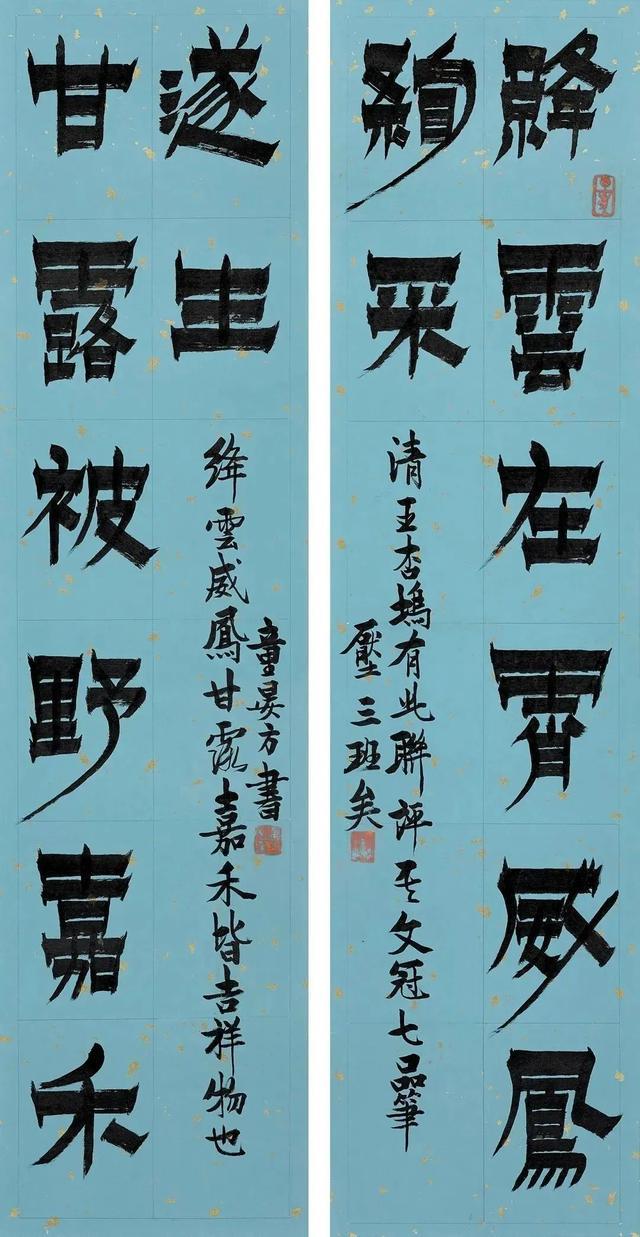 絳雲在霄威鳳
絢采
清王杏塢有此聯評其文冠七品筆
壓三班矣
甘露被野嘉禾
遂生
絳雲威鳳甘露嘉禾皆吉祥物也
童晏方書